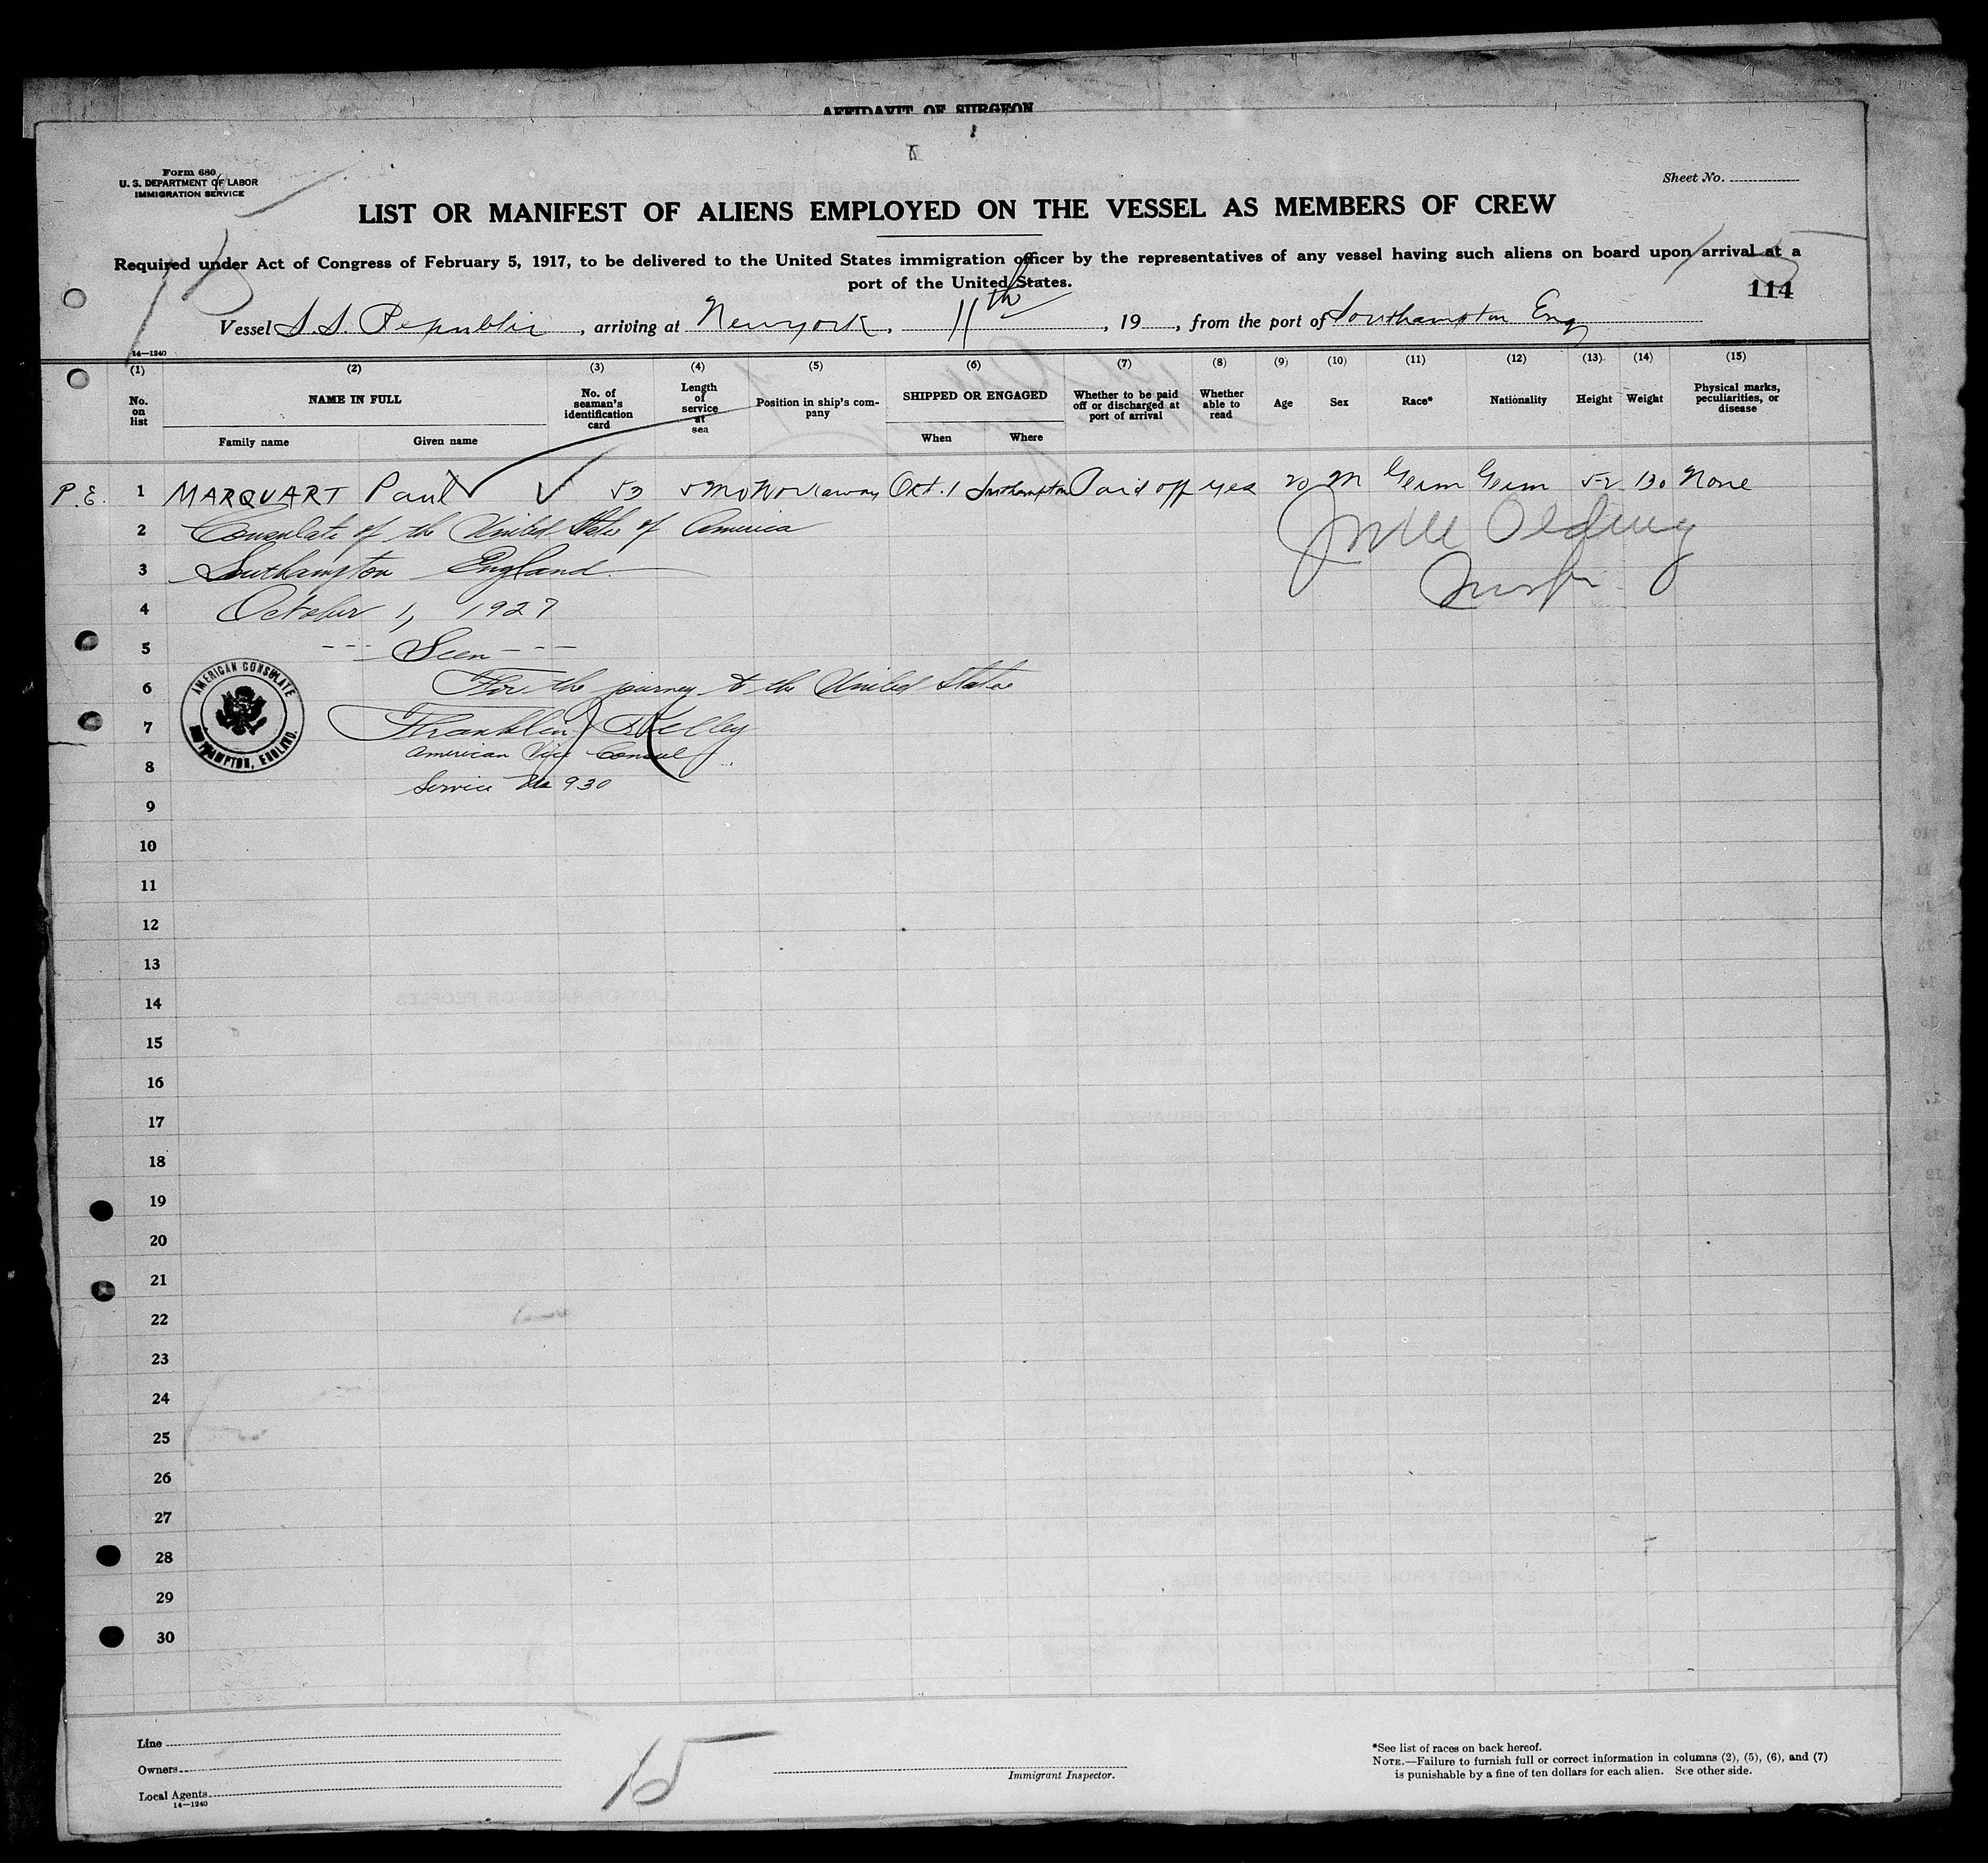 AFFIDAVIT OF SURGEON
Form 680
U. S. DEPARTMENT OF LABOR
IMMIGRATION SERVICE
Sheet No.
LIST OR MANIFEST OF ALIENS EMPLOYED ON THE VESSEL AS MEMBERS OF CREW
Required under Act of Congress of February 5, 1917, to be delivered to the United States immigration officer by the representatives of any vessel having such aliens on board upon arrival at a
port of the United States.
114
Vessel S.S. Republic, arriving at New york, 11th, 19, from the port of Southampton Eng
14—1240
(1) (2) (3) (4) (5) (6) (7) (8) (9) (10) (11) (12) (13) (14) (15)
No. on list
NAME IN FULL
Family name Given name
No. of seaman's identification card
Length of service at sea
Position in ship's company
SHIPPED OR ENGAGED
When Where
Whether to be paid off or discharged at port of arrival
Whether able to read
Age
Sex
Race*
Nationality
Height
Weight
Physical marks, peculiarities, or disease
P.E. 1 MARQUART Paul 53 5 Mo Workaway Oct. 1 Southampton Paid off yes 20 M Germ Germ 5-2 130 None
2 Consulate of the United States of America
3 Southampton England.
4 October 1, 1927
5 --- Seen ---
6 For the journey to the United States
AMERICAN CONSULATE
SOUTHAMPTON, ENGLAND.
7 Franklin Kelley
8 American Vice Consul
Service No 930
9
10
11
12
13
14
15
16
17
18
19
20
21
22
23
24
25
26
27
28
29
30
Line
Owners
Local Agents
14—1240
15
Immigrant Inspector.
*See list of races on back hereof.
NOTE.—Failure to furnish full or correct information in columns (2), (5), (6), and (7)
is punishable by a fine of ten dollars for each alien. See other side.